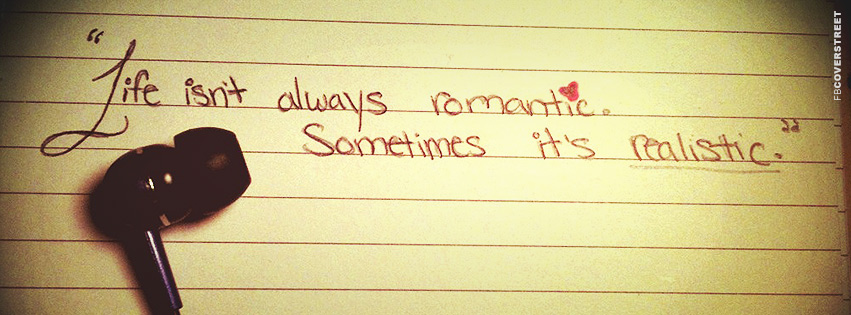 "Life isn't always romantic.
Sometimes it's realistic."
FBCOVERSTREET